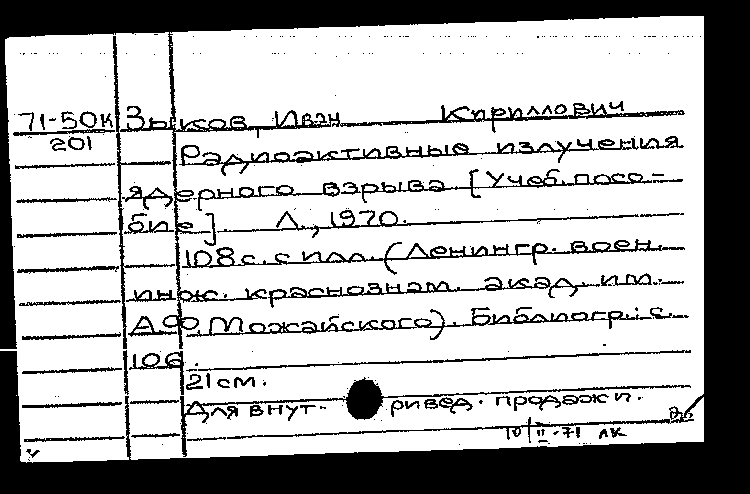 71-50к Зыков, Иван Кириллович
201
Радиоактивные излучения
ядерного взрыва [Учеб. посо-
бие]. Л., 1970.
108 с. с илл. (Ленингр. воен.
инж. краснознам. акад. им.
А.Ф. Можайского). Библиогр.: с.
106.
21 см.
Для внут. ривед. продажи.
10/II-71 ЛК